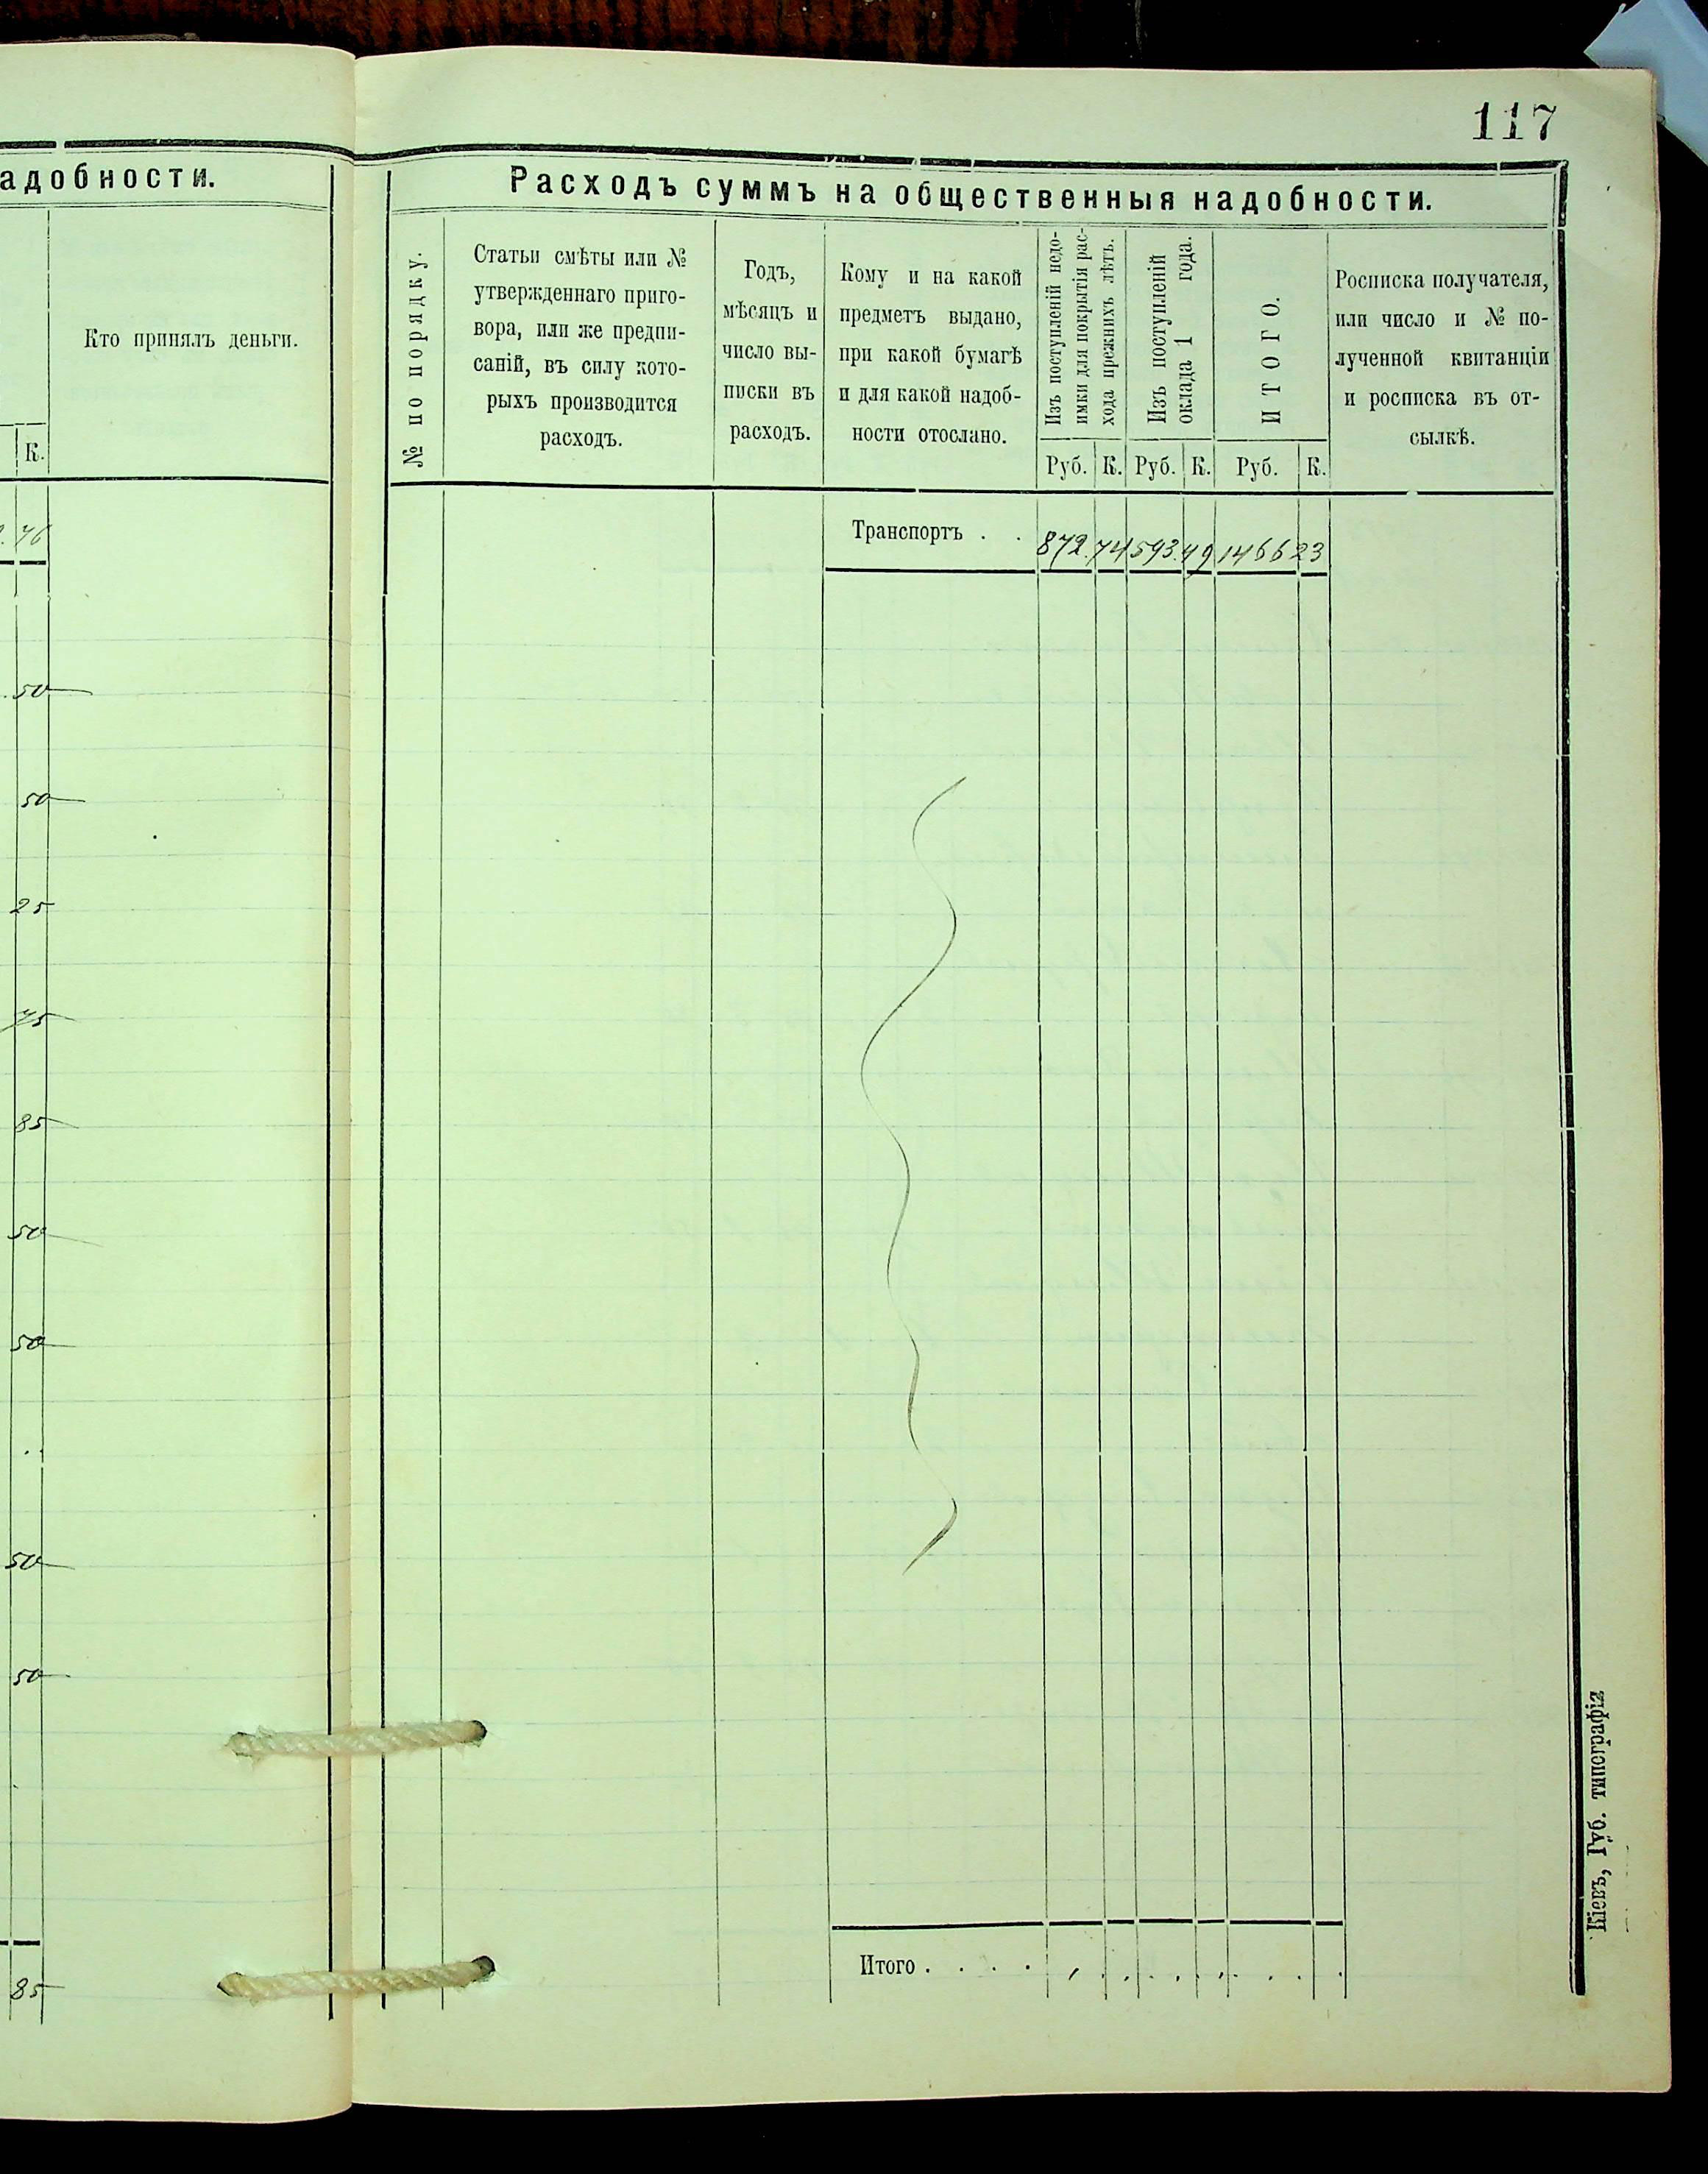 117
адобности.
Кто принялъ деньги.
К.
76
50
50
25
75
85
50
50
50
50
85
Расходъ суммъ на общественныя надобности.
№ по порядку.
Статьи смѣты или №
утвержденнаго приго-
вора, или же предпи-
саній, въ силу кото-
рыхъ производится
расходъ.
Годъ,
мѣсяцъ и
число вы-
писки въ
расходъ.
Кому и на какой
предметъ выдано,
при какой бумагѣ
и для какой надоб-
ности отослано.
Изъ поступленій недо-
имки для покрытія рас-
хода прежнихъ лѣтъ.
Изъ поступленій
оклада 1 года.
ИТОГО.
Росписка получателя,
или число и № по-
лученной квитанціи
и росписка въ от-
сылкѣ.
Руб. К. Руб. К. Руб. К.
Транспортъ . . 872. 74 593. 49 1466 23
Итого . . . .
Кіевъ, Губ. типографія